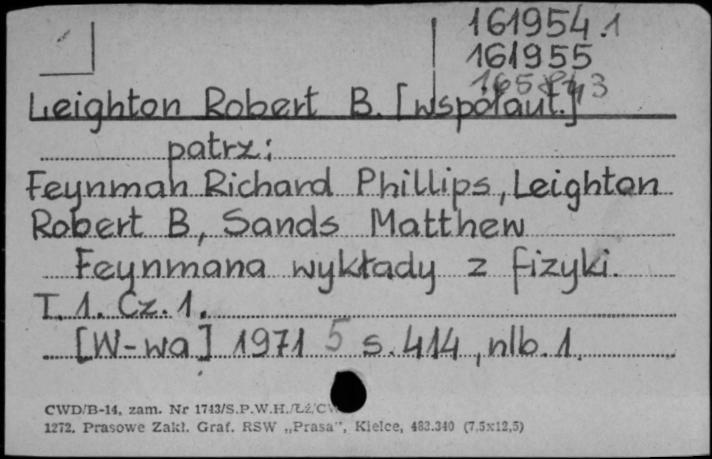 161954.1
161955
Leighton Robert B. [współaut.]
patrz:
Feynman Richard Phillips, Leighton
Robert B, Sands Matthew
Feynmana wykłady z fizyki.
T. 1. Cz. 1.
[W-wa] 1971 5 s. 414, nlb. 1.
CWD/B-14, zam. Nr 1743/S.P.W.H./Łź/CW
1272. Prasowe Zakł. Graf. RSW „Prasa”, Kielce, 483.340 (7,5x12,5)